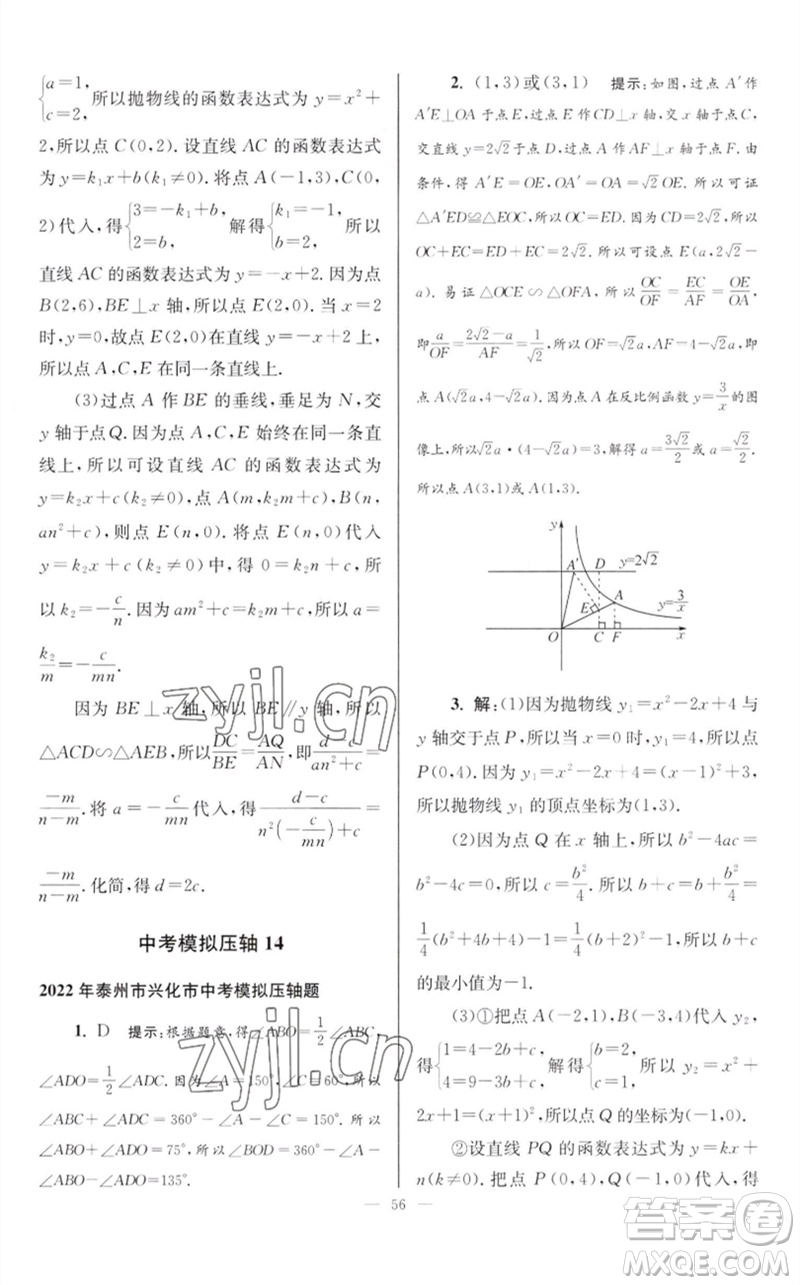 {a=1, c=2, 所以抛物线的函数表达式为 y=x²+
2,所以点 C(0,2). 设直线 AC 的函数表达式
为 y=k₁x+b(k₁≠0). 将点 A(-1,3),C(0,
2)代入,得{3=-k₁+b, 2=b, 解得{k₁=-1, b=2, 所以
直线 AC 的函数表达式为 y=-x+2. 因为点
B(2,6),BE⊥x 轴,所以点 E(2,0). 当 x=2
时,y=0,故点 E(2,0)在直线 y=-x+2 上,
所以点 A,C,E 在同一条直线上.
(3)过点 A 作 BE 的垂线,垂足为 N,交
y 轴于点 Q. 因为点 A,C,E 始终在同一条直
线上,所以可设直线 AC 的函数表达式为
y=k₂x+c(k₂≠0),点 A(m,k₂m+c),B(n,
an²+c),则点 E(n,0). 将点 E(n,0)代入
y=k₂x+c(k₂≠0)中,得 0=k₂n+c,所
以 k₂=-c/n. 因为 am²+c=k₂m+c,所以 a=
k₂/m=-c/(mn).
因为 BE⊥x 轴,所以 BE∥y 轴,所以
△ACD∽△AEB,所以DC/BE=AQ/AN,即(d-c)/(an²+c)=
-m/(n-m). 将 a=-c/(mn)代入,得(d-c)/(n²(-c/(mn))+c)=
-m/(n-m). 化简,得 d=2c.
中考模拟压轴 14
2022 年泰州市兴化市中考模拟压轴题
1. D 提示:根据题意,得∠ABO=1/2∠ABC,
∠ADO=1/2∠ADC. 因为∠A=150°,∠C=60°,所以
∠ABC+∠ADC=360°-∠A-∠C=150°. 所以
∠ABO+∠ADO=75°,所以∠BOD=360°-∠A-
∠ABO-∠ADO=135°.
2. (1,3)或(3,1) 提示:如图,过点 A′作
A′E⊥OA 于点 E,过点 E 作 CD⊥x 轴,交 x 轴于点 C,
交直线 y=2√2于点 D,过点 A 作 AF⊥x 轴于点 F. 由
条件,得 A′E=OE,OA′=OA=√2OE. 所以可证
△A′ED≌△EOC,所以 OC=ED. 因为 CD=2√2,所以
OC+EC=ED+EC=2√2. 所以可设点 E(a,2√2-
a). 易证△OCE∽△OFA,所以OC/OF=EC/AF=OE/OA,
即a/OF=(2√2-a)/AF=1/√2. 所以 OF=√2a,AF=4-√2a,即
点 A(√2a,4-√2a). 因为点 A 在反比例函数 y=3/x的图
像上,所以√2a·(4-√2a)=3,解得 a=3√2/2或 a=√2/2.
所以点 A(3,1)或 A(1,3).
y
A′ D y=2√2
E A y=3/x
O C F x
3. 解:(1)因为抛物线 y₁=x²-2x+4 与
y 轴交于点 P,所以当 x=0 时,y₁=4,所以点
P(0,4). 因为 y₁=x²-2x+4=(x-1)²+3,
所以抛物线 y₁ 的顶点坐标为(1,3).
(2)因为点 Q 在 x 轴上,所以 b²-4ac=
b²-4c=0,所以 c=b²/4. 所以 b+c=b²/4+b=
1/4(b²+4b+4-4)=1/4(b+2)²-1,所以 b+c
的最小值为-1.
(3)①把点 A(-2,1)、B(-3,4)代入 y₂,
得{1=4-2b+c, 4=9-3b+c, 解得{b=2, c=1, 所以 y₂=x²+
2x+1=(x+1)²,所以点 Q 的坐标为(-1,0).
②设直线 PQ 的函数表达式为 y=kx+
n(k≠0). 把点 P(0,4)、Q(-1,0)代入,得
56
zyjl.cn
zyjl.cn
答案卷
MXQE.COM